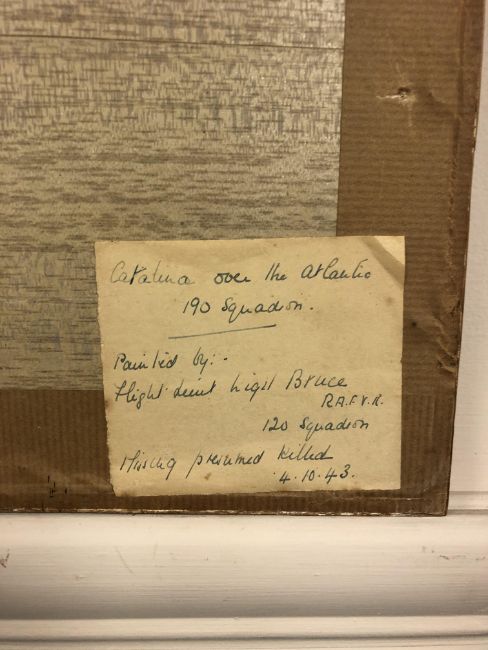 Catalina over the Atlantic
190 Squadron.
Painted by:-
Flight Lieut Nigel Bruce
R.A.F.V.R.
120 Squadron
Missing presumed killed
4.10.43.